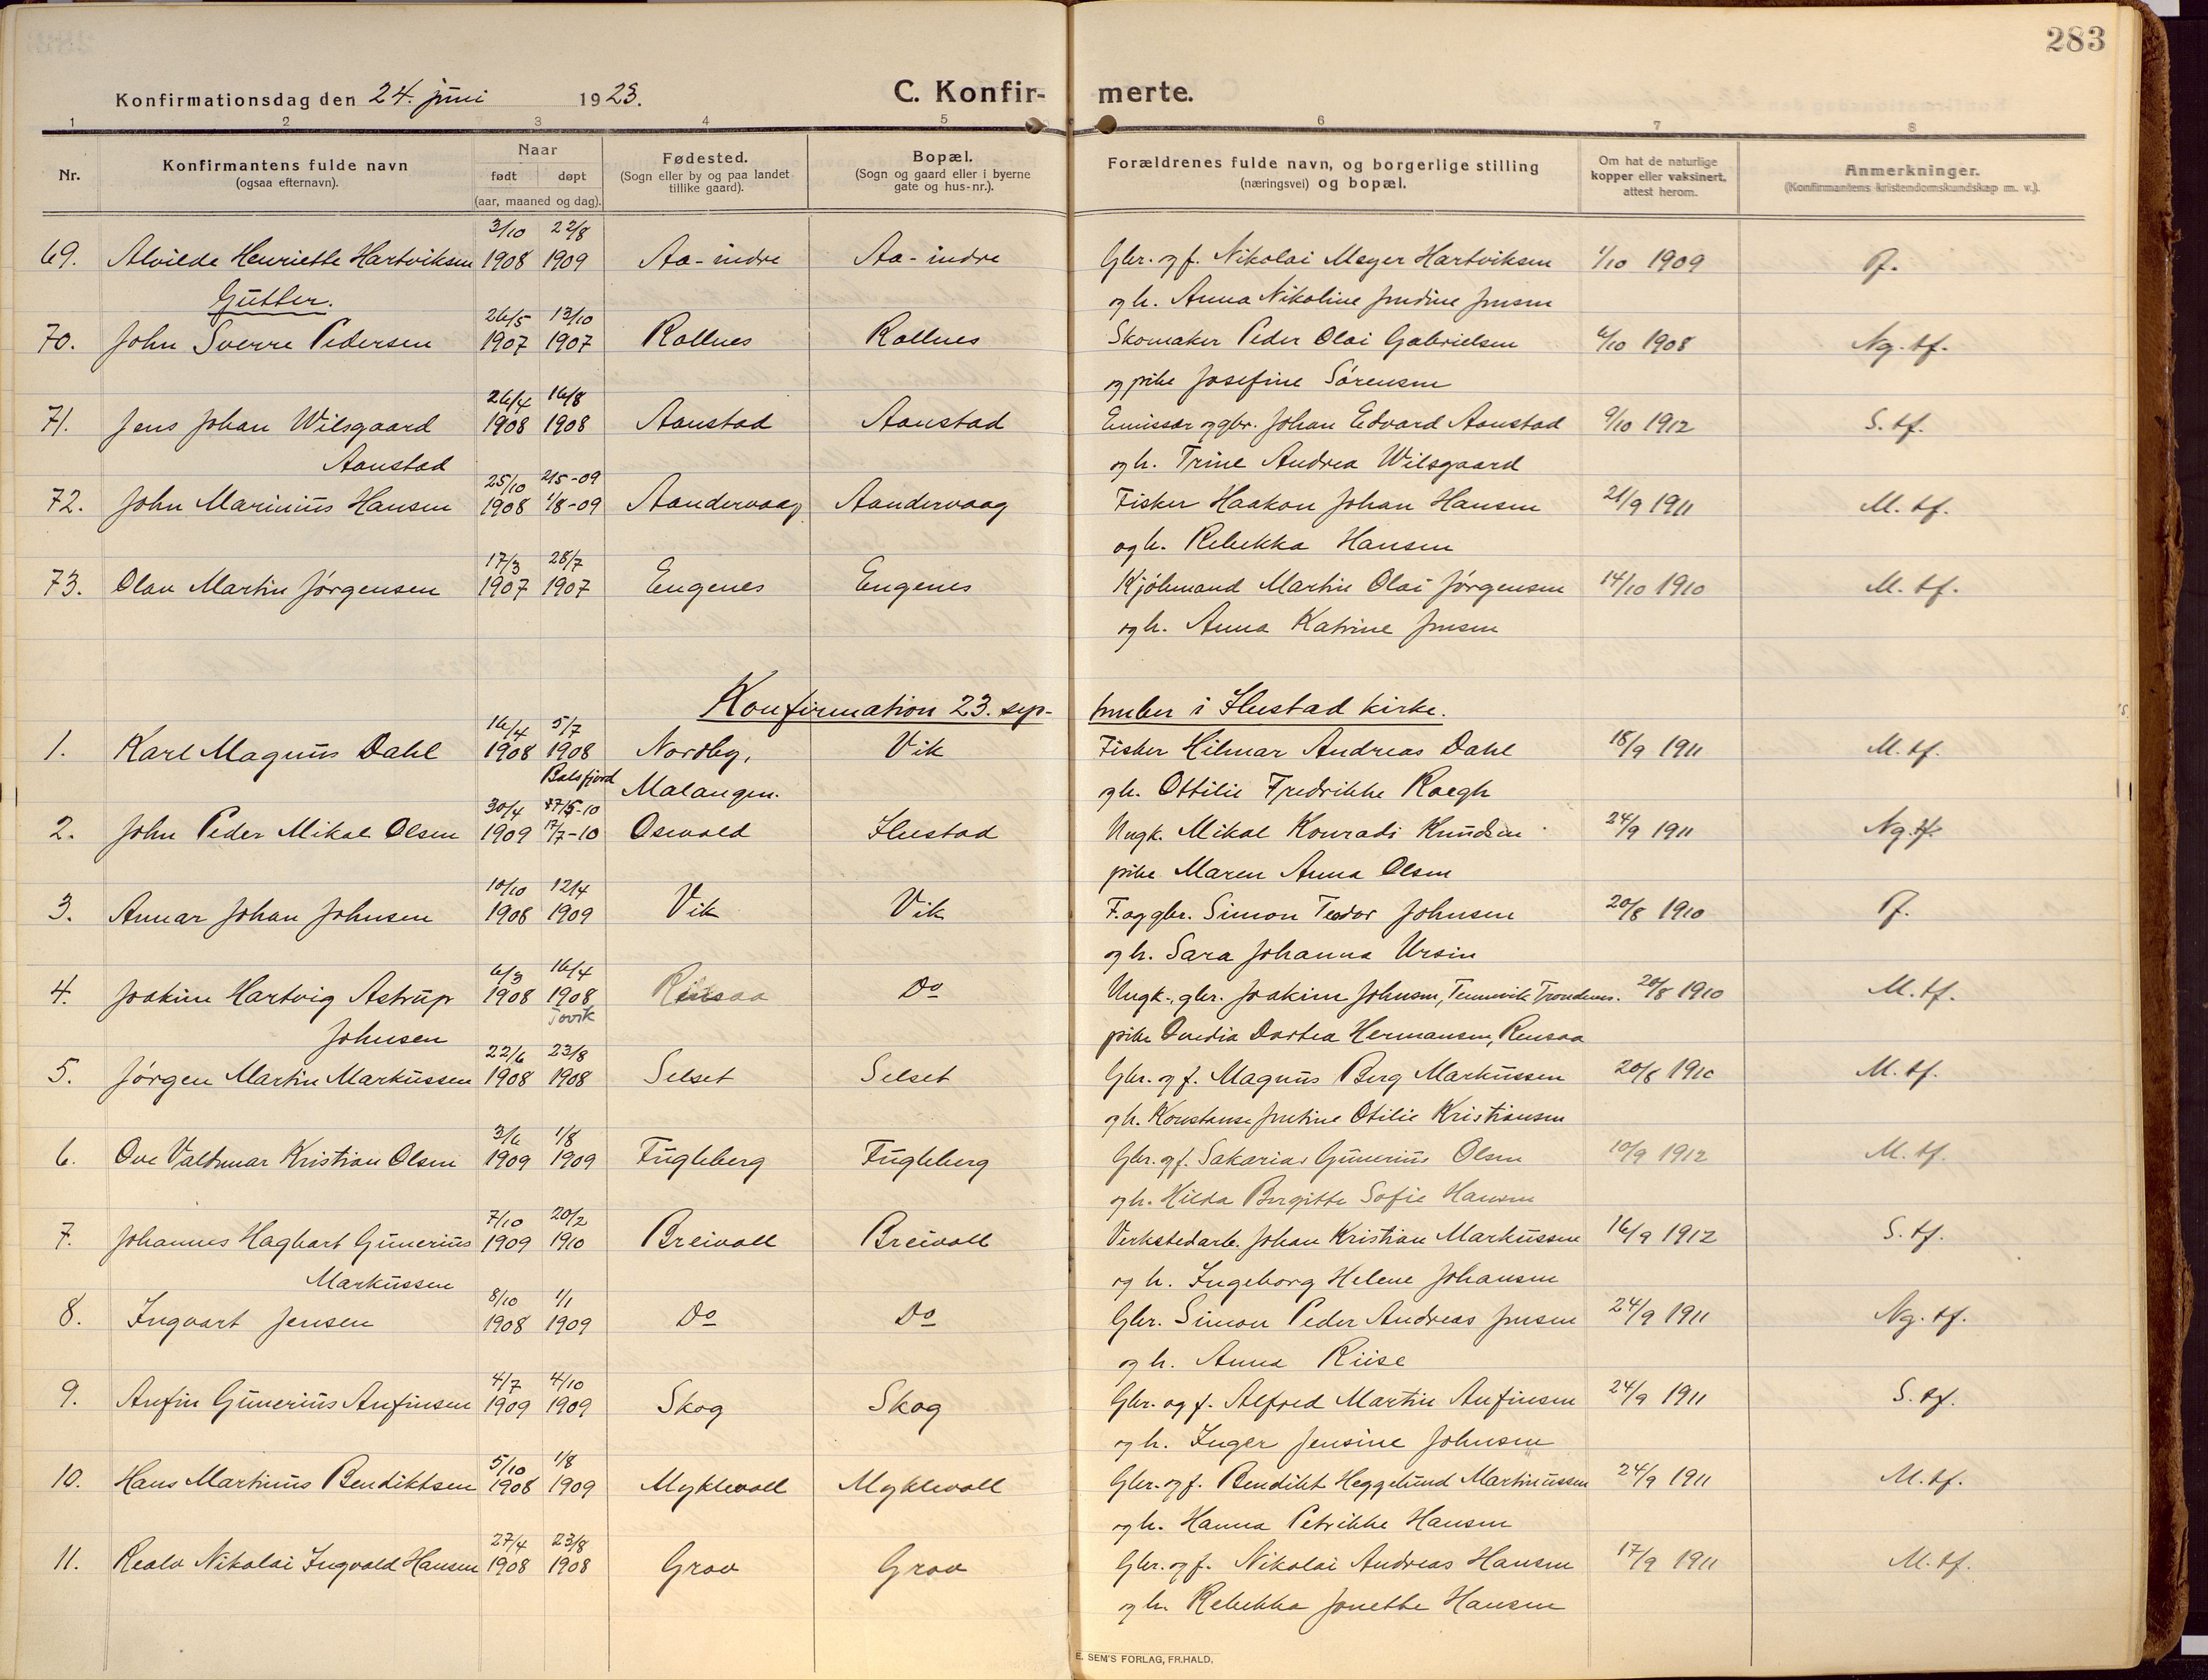 283
Konfirmationsdag den 24. juni 1923.
C. Konfir- merte.
1 2 3 4 5 6 7 8
Nr.
Konfirmantens fulde navn
(ogsaa efternavn).
Naar
født døpt
(aar, maaned og dag).
Fødested.
(Sogn eller by og paa landet
tillike gaard).
Bopæl.
(Sogn og gaard eller i byerne
gate og hus-nr.).
Forældrenes fulde navn, og borgerlige stilling
(næringsvei) og bopæl.
Om hat de naturlige
kopper eller vaksinert,
attest herom.
Anmerkninger.
(Konfirmantens kristendomskundskap m. v.).
3/10 22/8
69. Alvilde Henriette Hartviksen 1908 1909 Aa-indre Aa-indre Gbr. og f. Nikolai Meyer Hartviksen 1/10 1909
Gutter.
og h. Anna Nikoline Jendine Jensen
26/5 13/10
70. John Sverre Pedersen 1907 1907 Rollnes Rollnes Skomaker Peder Olai Gabrielsen 6/10 1908 Ng. tf.
og pike Josefine Sørensen
26/4 16/8
71. Jens Johan Wilsgaard 1908 1908 Aanstad Aanstad Emissær og gbr. Johan Edvard Aanstad 9/10 1912 S. tf.
Aanstad
og h. Trine Andrea Wilsgaard
25/10 2/5-09
72. John Marinius Hansen 1908 1/8-09 Aandervaag Aandervaag Fisker Haakon Johan Hansen 21/9 1911 M. tf.
og h. Rebekka Hansen
17/3 28/7
73. Olav Martin Jørgensen 1907 1907 Engenes Engenes Kjøbmand Martin Olai Jørgensen 14/10 1910 M. tf.
og h. Anna Katrine Jensen
Konfirmation 23. sep- tember i Ibestad kirke.
16/4 5/7
1. Karl Magnus Dahl 1908 1908 Nordby, Vik Fisker Hilmar Andreas Dahl 18/9 1911 M. tf.
Balsfjord Malangen.
og h. Ottilie Fredrikke Raegh
30/4 17/5-10
2. John Peder Mikal Olsen 1909 17/7-10 Osevold Ibestad Ungk. Mikal Konradi Knudsen 24/9 1911 Ng. tf.
pike Maren Anna Olsen
10/10 12/4
3. Annar Johan Johnsen 1908 1909 Vik Vik F. og gbr. Simon Teodor Johnsen 20/8 1910
og h. Sara Johanna Ursin
6/3 16/4
4. Joakim Hartvig Astrup 1908 1908 Rensaa Do Ungk., gbr. Joakim Johnsen, Tennevik Trondenes. 20/8 1910 M. tf.
Tovik
Johnsen
pike Ovedia Dortea Hermansen, Rensaa
22/6 23/8
5. Jørgen Martin Markussen 1908 1908 Selset Selset Gbr. og f. Magnus Berg Markussen 20/8 1910 M. tf.
og h. Konstanse Jentine Otilie Kristiansen
3/6 1/8
6. Ove Valdemar Kristian Olsen 1909 1909 Fugleberg Fugleberg Gbr. og f. Sakarias Gunerius Olsen 10/9 1912 M. tf.
og h. Hilda Bergitte Sofie Hansen
7/10 20/2
7. Johannes Hagbart Gunerius 1909 1910 Breivoll Breivoll Verkstedarb. Johan Kristian Markussen 16/9 1912 S. tf.
Markussen
og h. Ingeborg Helene Johansen
8/10 1/1
8. Ingvart Jensen 1908 1909 Do Do Gbr. Simon Peder Andreas Jensen 24/9 1911 Ng. tf.
og h. Anna Riise
4/7 4/10
9. Anfin Gunerius Anfinsen 1909 1909 Skog Skog Gbr. og f. Alfred Martin Anfinsen 24/9 1911 S. tf.
og h. Inger Jensine Johnsen
5/10 1/8
10. Hans Martinus Bendiktsen 1908 1909 Myklevoll Myklevoll Gbr. og f. Bendikt Heggelund Martinussen 24/9 1911 M. tf.
og h. Hanna Petrikke Hansen
27/4 23/8
11. Realv Nikolai Ingvald Hansen 1908 1908 Grov Grov Gbr. og f. Nikolai Andreas Hansen 17/9 1911 M. tf.
og h. Rebekka Jonette Hansen
E. SEM'S FORLAG, FR.HALD.